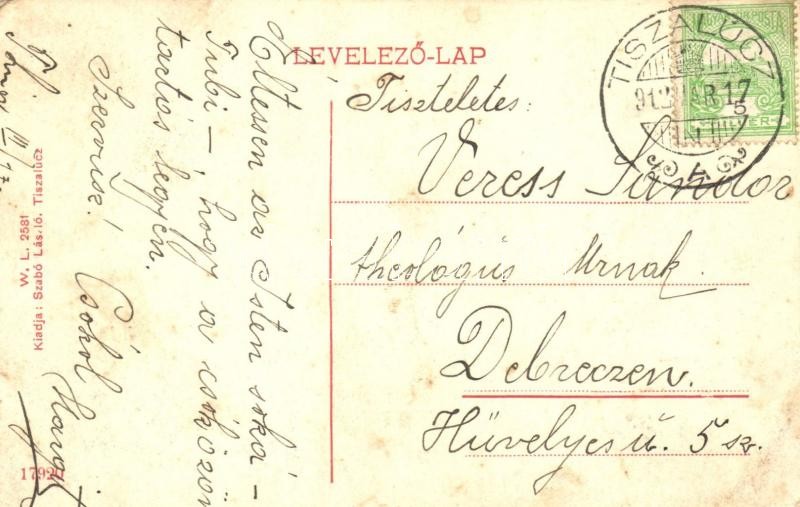 LEVELEZŐ-LAP
TISZALÚCZ
17
5
Tiszteletes:
Veress Sándor
theológus Urnak.
Debreczen.
Hüvelyes u. 5 sz.
Éltessen az Isten soká –
Tubi – , hogy a csóközön
tartós legyen.
Szervusz! Csókol
III/17.
W. L. 2581
Kiadja: Szabó László. Tiszalúcz